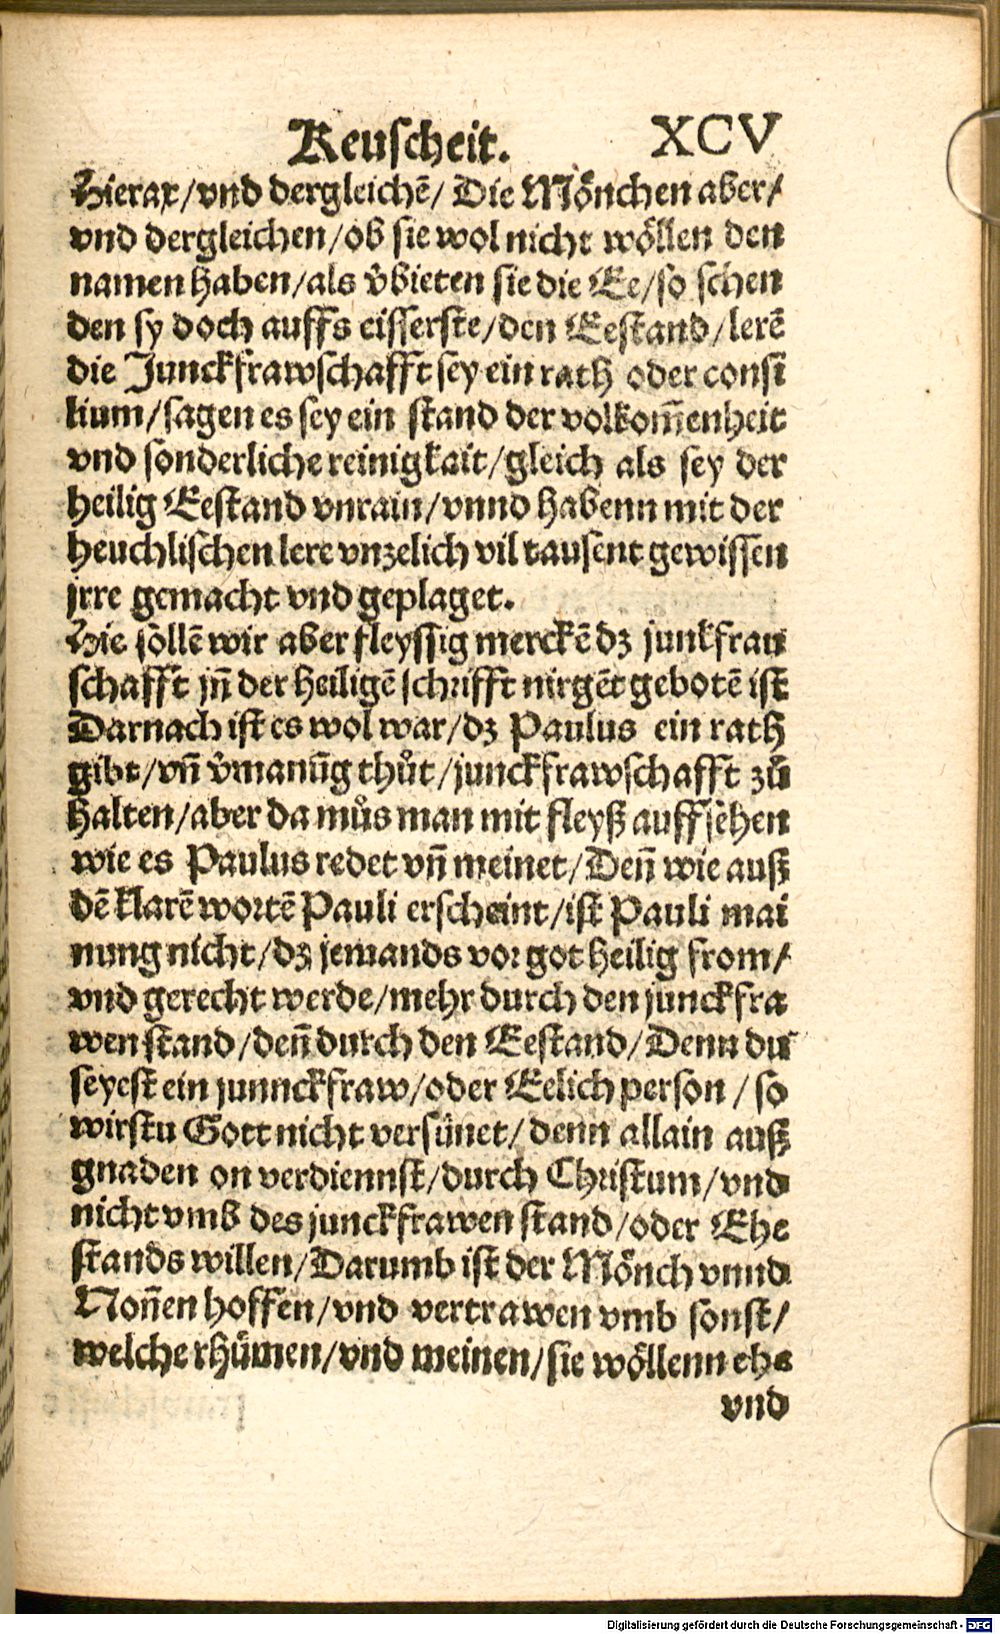 Keuscheit. XCV
Hierax/vnd dergleichē/ Die Mönchen aber/
vnd dergleichen/ob sie wol nicht wöllen den
namen haben/als v̉bieten sie die Ee/so schen
den sy doch auffs eisserste/den Eestand/lerē
die Junckfrawschafft sey ein rath oder consi
lium/sagen es sey ein stand der volkom̄enheit
vnd sonderliche reinigkait/gleich als sey der
heilig Eestand vnrain/vnnd habenn mit der
heuchlischen lere vnzelich vil tausent gewissen
jrre gemacht vnd geplaget.
Hie söllē wir aber fleyssig merckē dz junkfrau
schafft jn̄ der heiligē schrifft nirgēt gebotē ist
Darnach ist es wol war/dz Paulus ein rath
gibt/vn̄ v̉manūg thůt/junckfrawschafft zů
halten/aber da můs man mit fleyß auffsehen
wie es Paulus redet vn̄ meinet/Den̄ wie auß
dē klarē wortē Pauli erscheint/ist Pauli mai
nung nicht/dz jemands vor got heilig from/
vnd gerecht werde/mehr durch den junckfra
wen stand/den̄ durch den Eestand/Denn du
seyest ein junnckfraw/oder Eelich person/so
wirstu Gott nicht versünet/denn allain auß
gnaden on verdiennst/durch Christum/vnd
nicht vmb des junckfrawen stand/oder Ehe
stands willen/Darumb ist der Mönch vnnd
Non̄en hoffen/vnd vertrawen vmb sonst/
welche rhümen/vnd meinen/sie wöllenn ehe
vnd
Digitalisierung gefördert durch die Deutsche Forschungsgemeinschaft - DFG